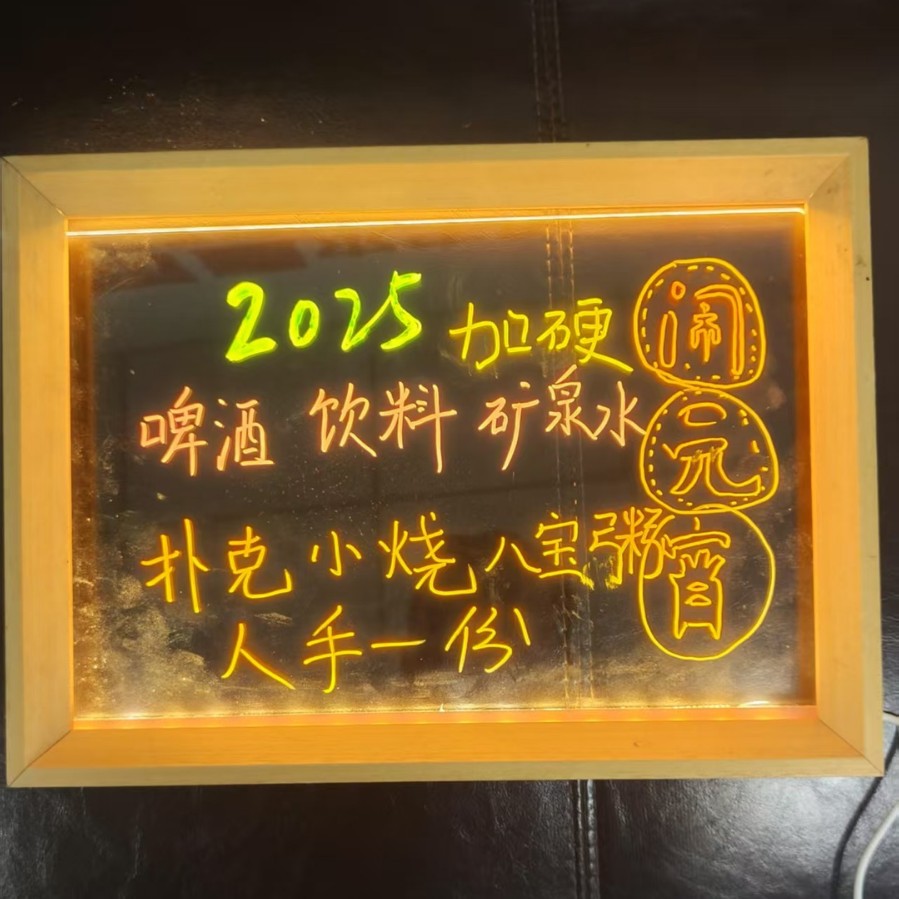 2025 加硬
啤酒 饮料 矿泉水
扑克 小烧 八宝粥
人手一份
闹元宵